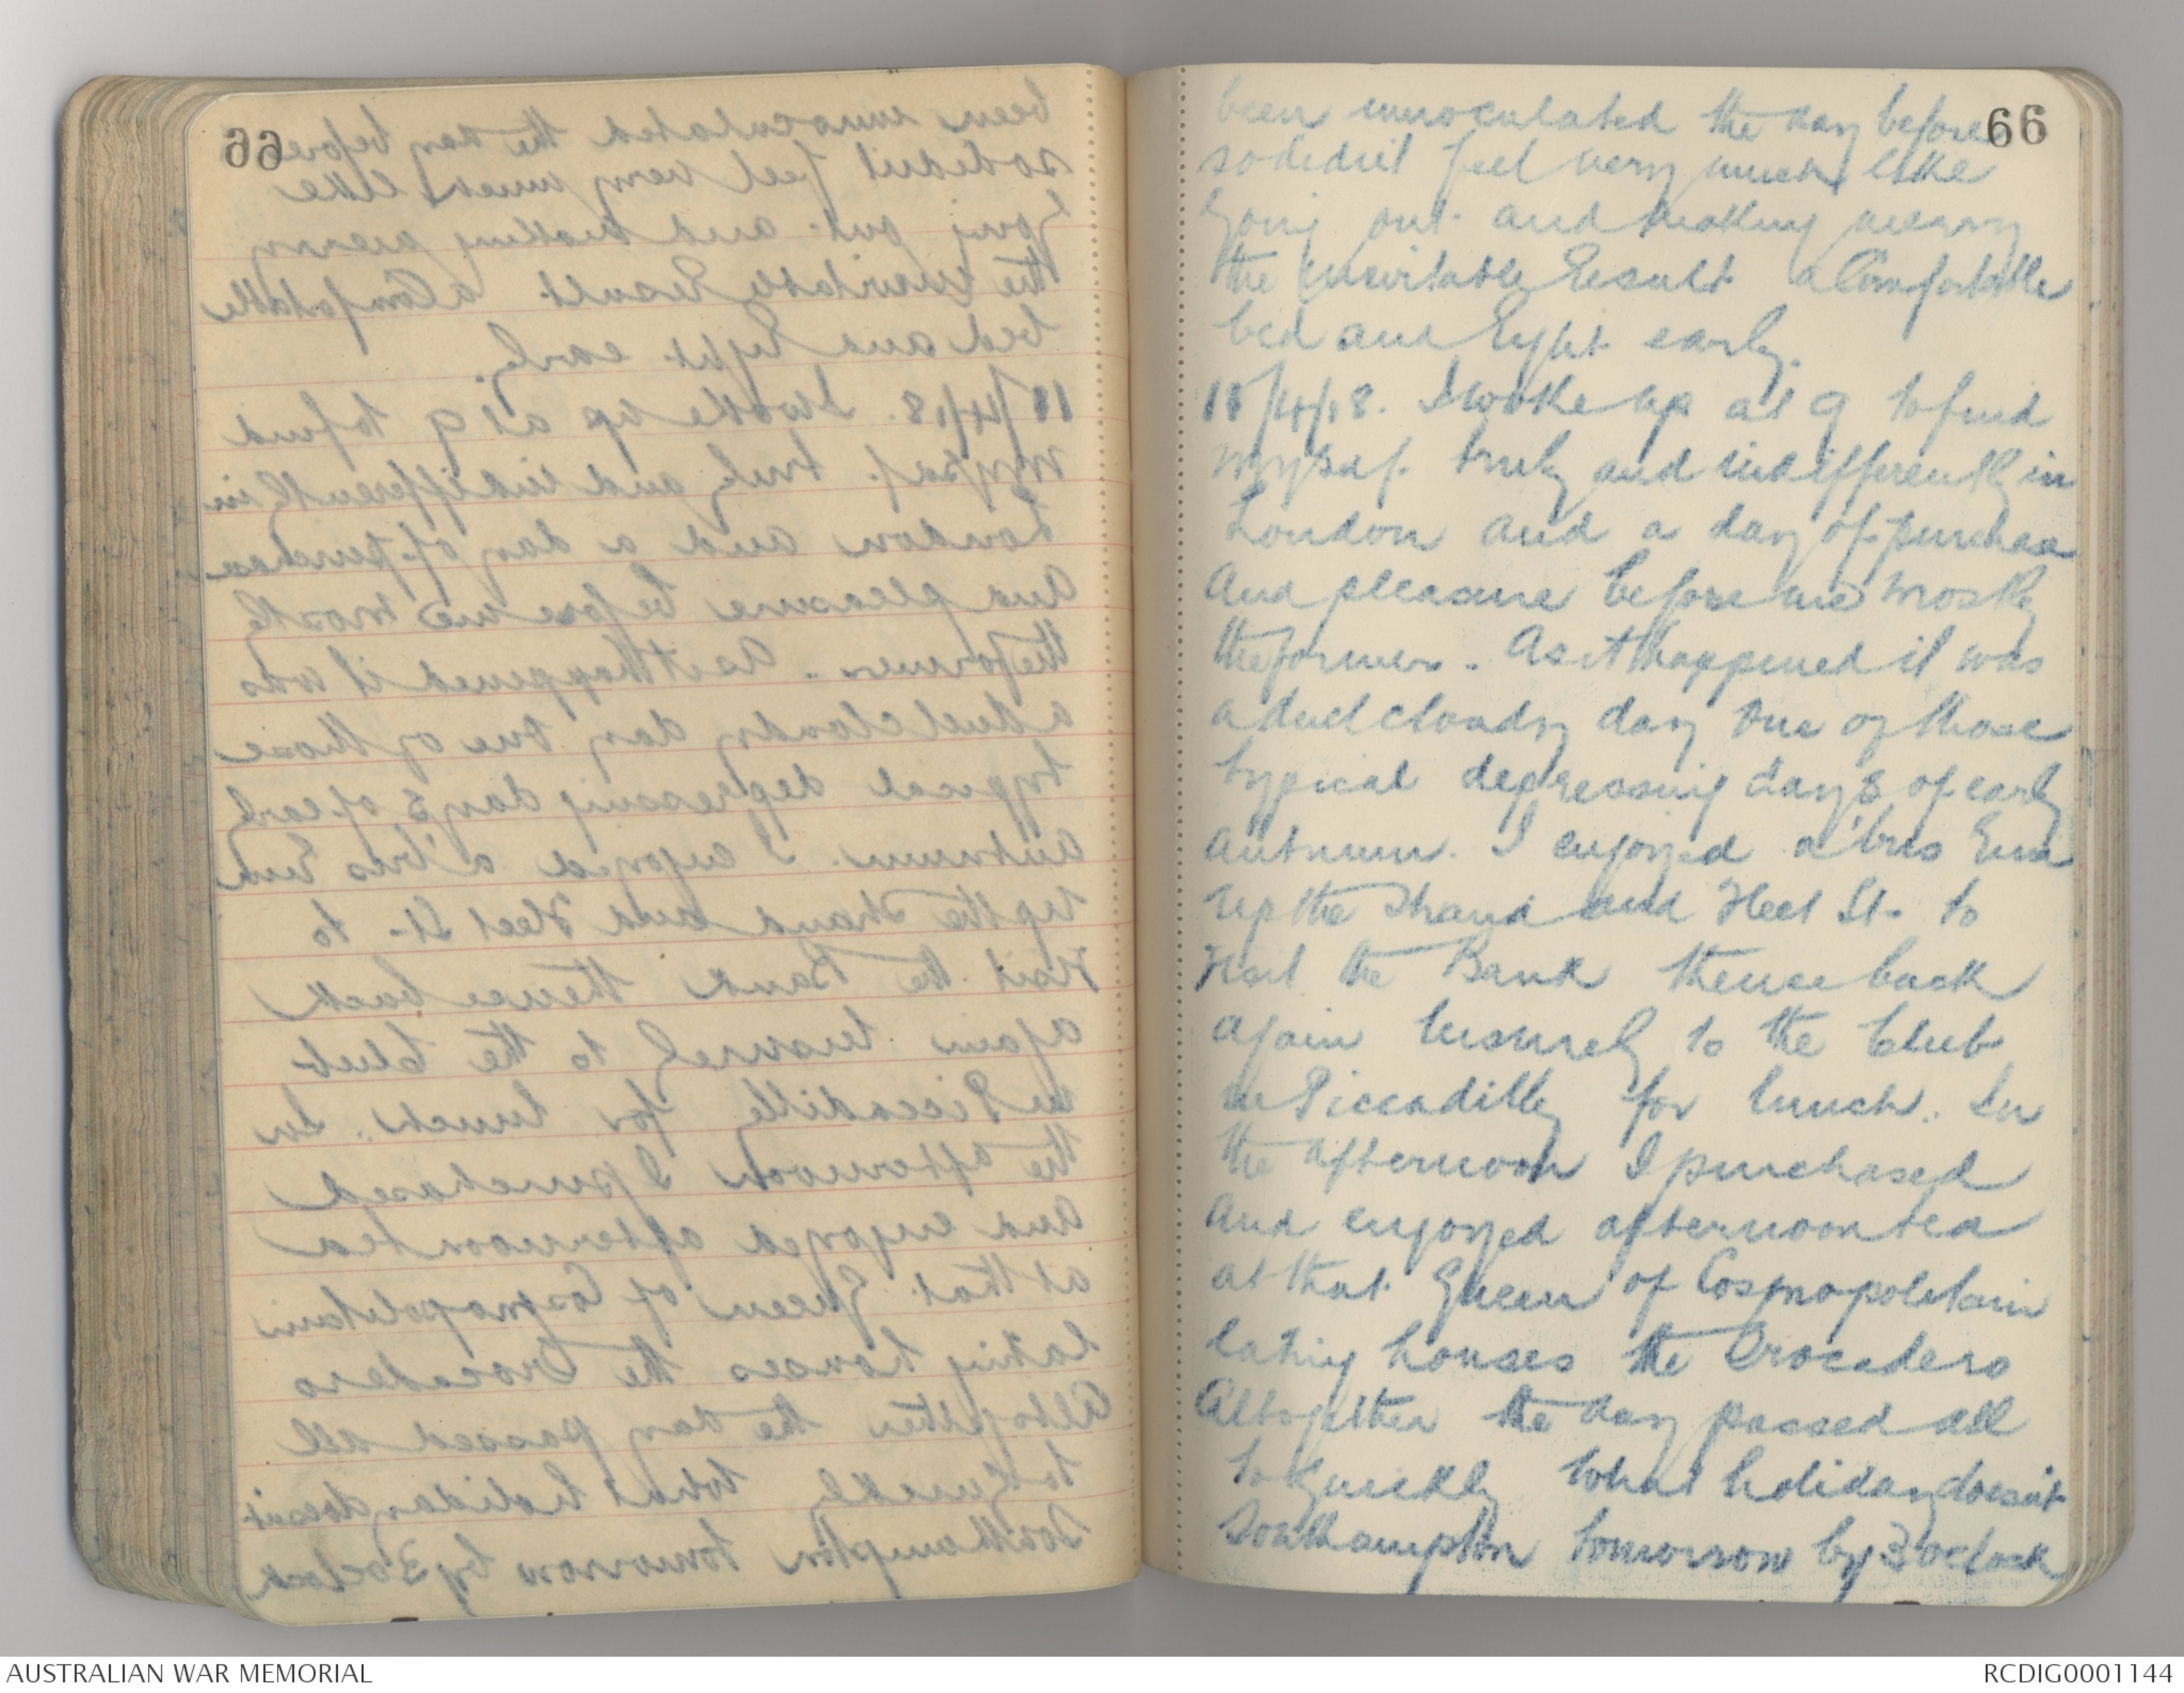 66
been innoculated the day before
so didnt feel very much like
going out and making merry
the inevitable Result a Comfortable
bed and Eight early.
18/4/18. I woke up at 9 to find
myself truly and indifferently in
London and a day of purchase
and pleasure before me mostly
the former. As it happened it was
a duel cloudy day one of those
typical depressing days of early
autumn. I enjoyed a bus Run
up the Strand and Fleet St. to
visit the Bank thence back
again leisurely to the Club
in Piccadilly for lunch. In
the afternoon I purchased
and enjoyed afternoon tea
at that Queen of Cosmopolitain
eating houses the Trocadero
Altogether the day passed all
to quickly What holiday doesnt
Southampton tomorrow by 3 oclock
AUSTRALIAN WAR MEMORIAL
RCDIG0001144